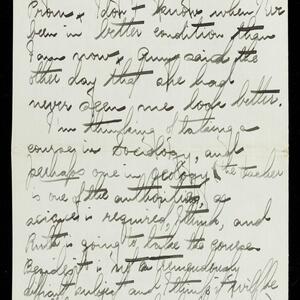 Prom. I don't know when I've
been in better condition than
I am now. Amy said the
other day that she had
never seen me look better.
I'm thinking of taking a
course in Sociology, and
perhaps one in geology (the teacher
is one of the authorities, as
science is required, I think, and
Ruth is going to take the course
Besides it is not a tremendously
difficult subject and I think it will be